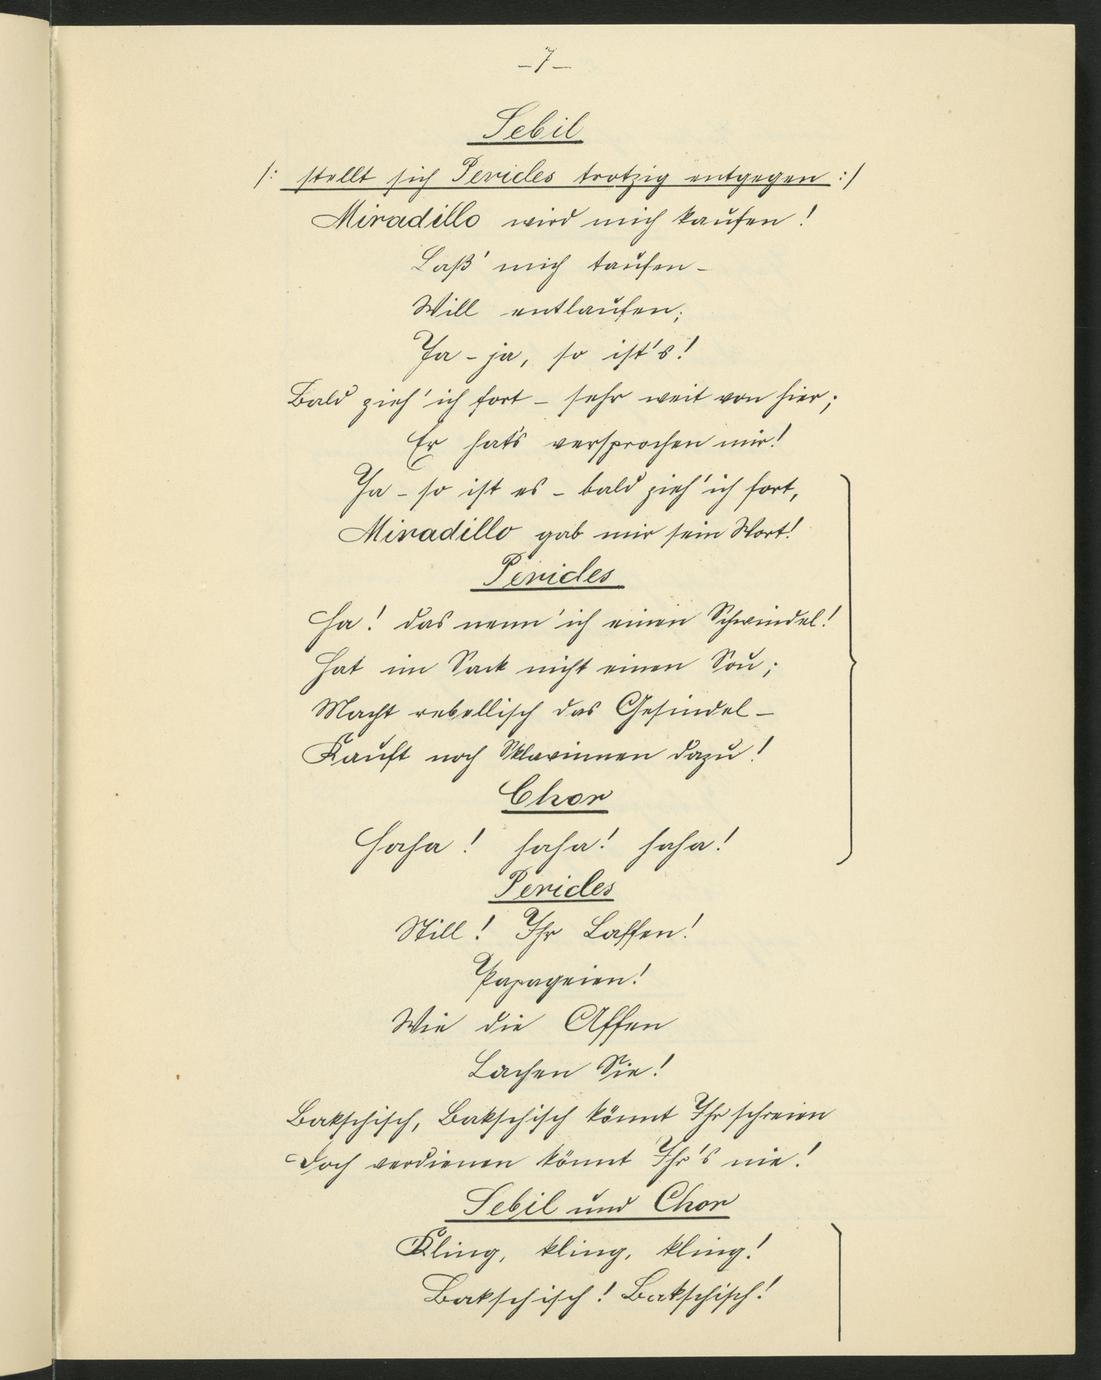 -7-
Sebil
/: stellt sich Pericles trotzig entgegen :/
Miradillo wird mich kaufen!
Laß' mich taufen -
Will entlaufen;
Ja - ja, so ist's!
Bald zieh' ich fort - sehr weit von hier;
Er hat's versprochen mir!
Ja - so ist es - bald zieh' ich fort,
Miradillo gab mir sein Wort!
Pericles
Ha! das nenn' ich einen Schwindel!
Hat im Sack nicht einen Sou;
Macht rebellisch das Gesindel -
Kauft noch Sklavinnen dazu!
Chor
Haha! haha! haha!
Pericles
Still! Ihr Laffen!
Papageien!
Wie die Affen
Lachen Sie!
Bakschisch, Bakschisch könnt Ihr schreien
Doch verdienen könnt Ihr's nie!
Sebil und Chor
Kling, kling, kling!
Bakschisch! Bakschisch!